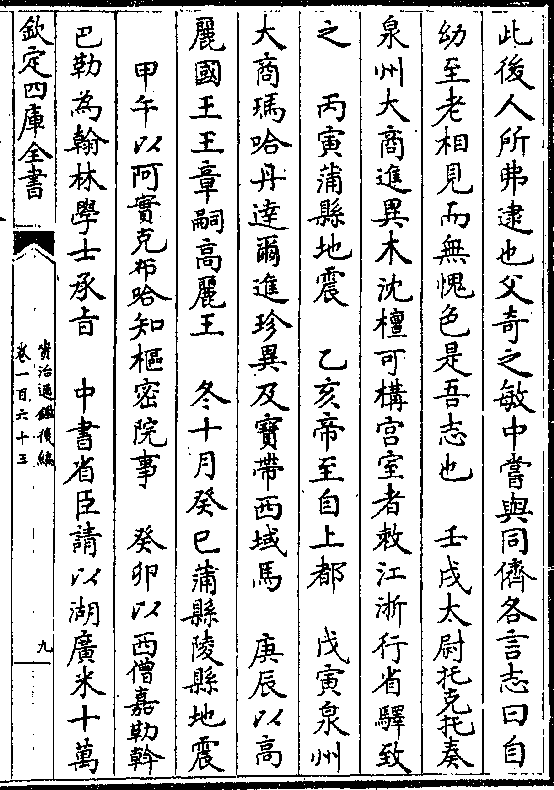 此後人所弗逮也父奇之敏中嘗與同儕各言志曰自
幼至老相見而無愧色是吾志也　壬戌太尉托克托奏
泉州大商進異木沈檀可構宫室者敕江浙行省驛致
之　丙寅蒲縣地震　乙亥帝至自上都　戊寅泉州
大商瑪哈丹達爾進珍異及寶帶西域馬　庚辰以高
麗國王王章嗣高麗王　冬十月癸巳蒲縣陵縣地震
甲午以阿實克布哈知樞密院事　癸卯以西僧嘉勒斡
巴勒為翰林學士承㫖　中書省臣請以湖廣米十萬
欽定四庫全書
資治通鑑後編
卷一百六十三
九